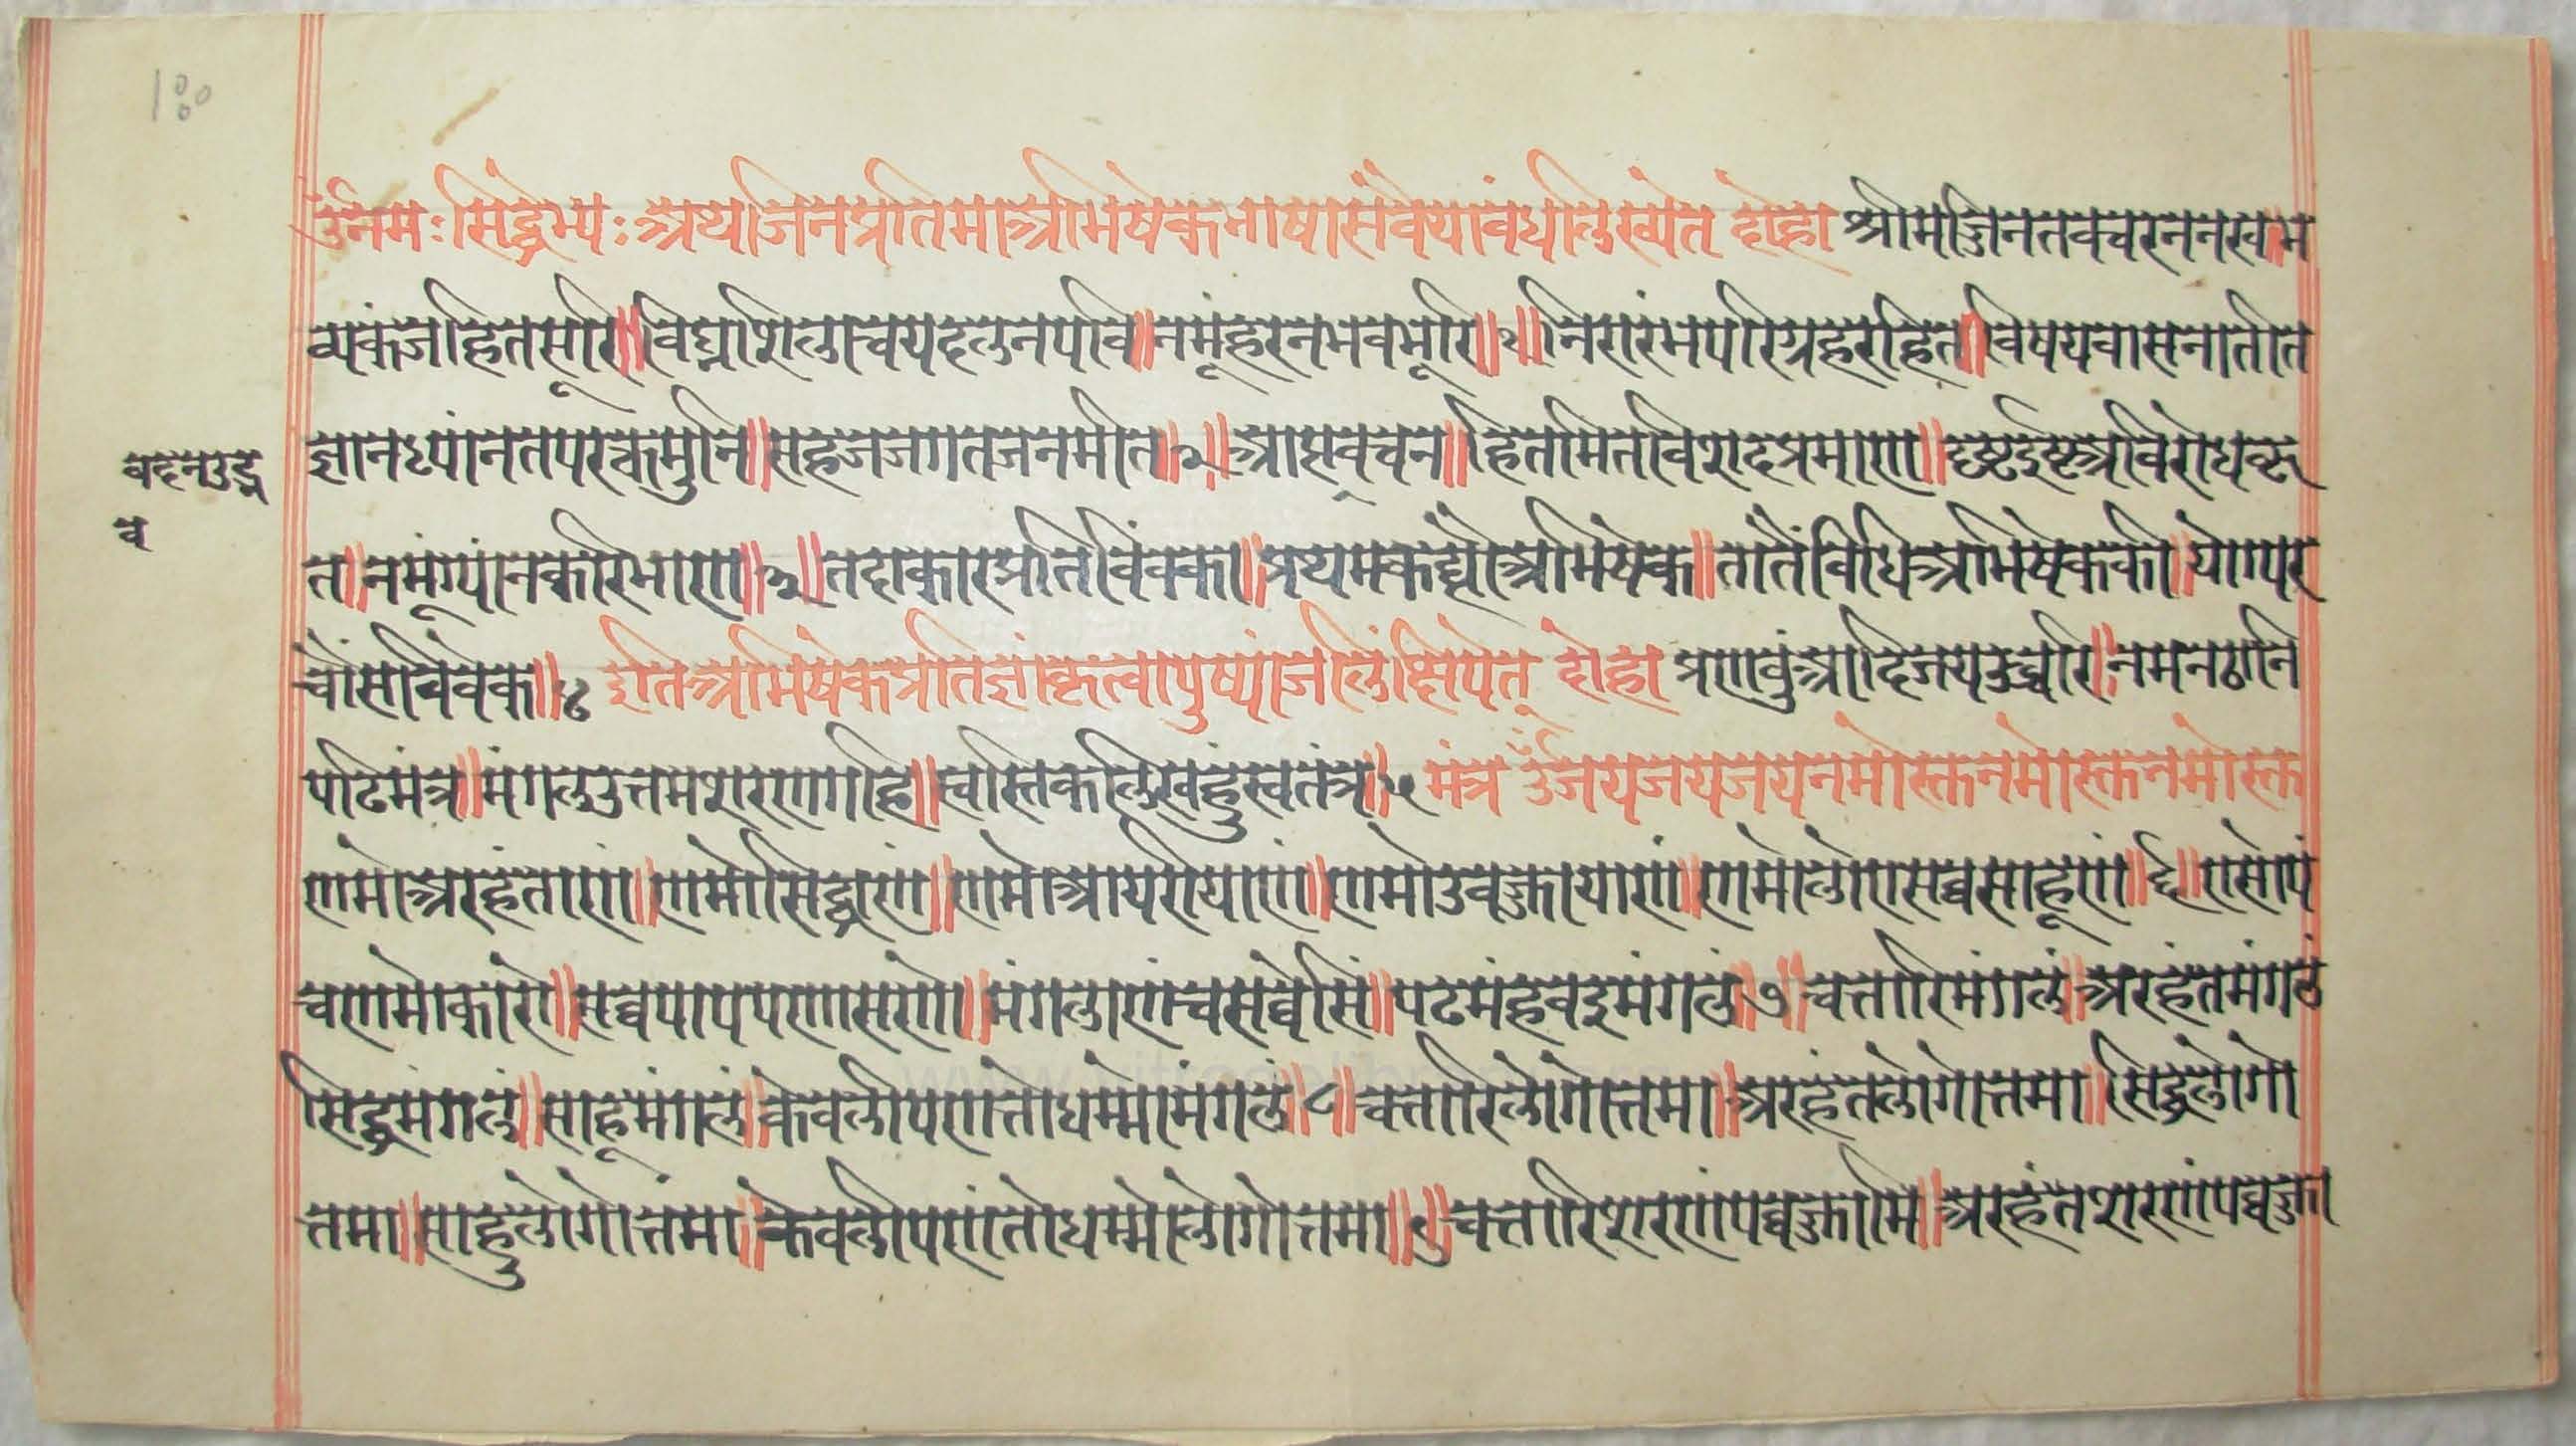 १००
ॐनमःसिद्धेभ्यःअथजिनप्रतिमाअभिषेकभाषासवैयाबंधलिख्येत दोहा श्रीमज्जिनतवचरननख॥भ
व्यकंजहितसूरि॥विघ्नशिलाचयदलनपवि॥नमूंहरनभवभूरि॥१॥निरारंभपरिग्रहरहित॥विषयवासनातीत
ज्ञानध्यांनतपरक्तमुनि॥सहजजगतजनमीत॥२॥आप्तवचन॥हितमितविशदप्रमाण॥दृष्टइष्टअविरोधकृ
वदनउद्भ
व
त॥नमूंग्यांनकरिभाण॥३॥तदाकारप्रतिबिंबका॥प्रथमकह्यौअभिषेक॥तातैंविधिअभिषेककी॥योग्यर
चौंसविवेक॥४ इतिअभिषेकप्रतिज्ञांकृत्वापुष्पांजलिंक्षिपेत् दोहा प्रणवुंआदिजयउच्चरि॥नमनठानि
पढिमंत्र॥मंगलउत्तमशरणगहि॥स्वस्तिकलिखहुस्वतंत्र॥५ मंत्र ॐजयजयजयनमोस्तुनमोस्तुनमोस्तु
णमोअरहंताणं॥णमोसिद्धाणं॥णमोआयरीयाणं॥णमोउवज्झायाणं॥णमोलोएसव्वसाहूणं॥६॥एसोपं
चणमोकारो॥सव्वपापपणासणो॥मंगलाणंचसव्वेसिं॥पढमंहवइमंगलं॥७॥चत्तारिमंगलं॥अरहंतमंगलं
सिद्धमंगलं॥साहूमंगलं॥केवलीपणंत्तोधम्मोमंगलं॥८॥चत्तारिलोगोत्तमा॥अरहंतलोगोत्तमा॥सिद्धलोगो
त्तमा॥साहुलोगोत्तमा॥केवलीपणंतोधम्मोलोगोत्तमा॥९॥चत्तारिशरणंपव्वज्झामि॥अरहंतशरणंपव्वज्झा